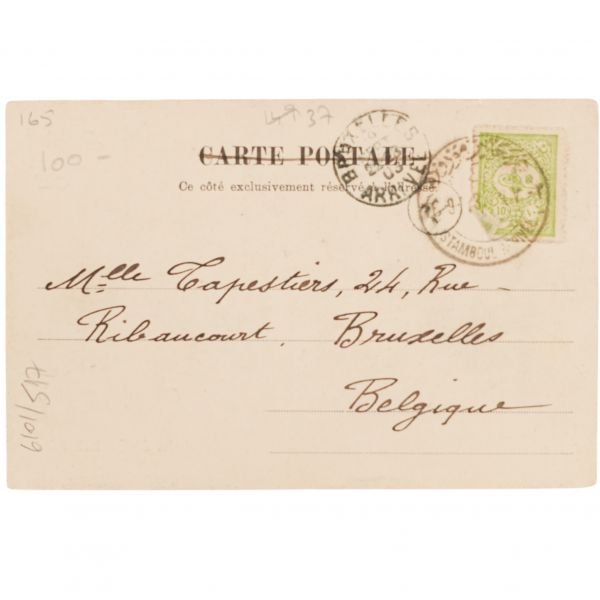 165
37
100-
CARTE POSTALE
Ce côté exclusivement réservé à l'adresse
BRUXELLES
03
ARRIVÉE
STAMBOUL
10
Mlle Capestiers, 24, Rue -
Ribaucourt. Bruxelles
Belgique
6101/517